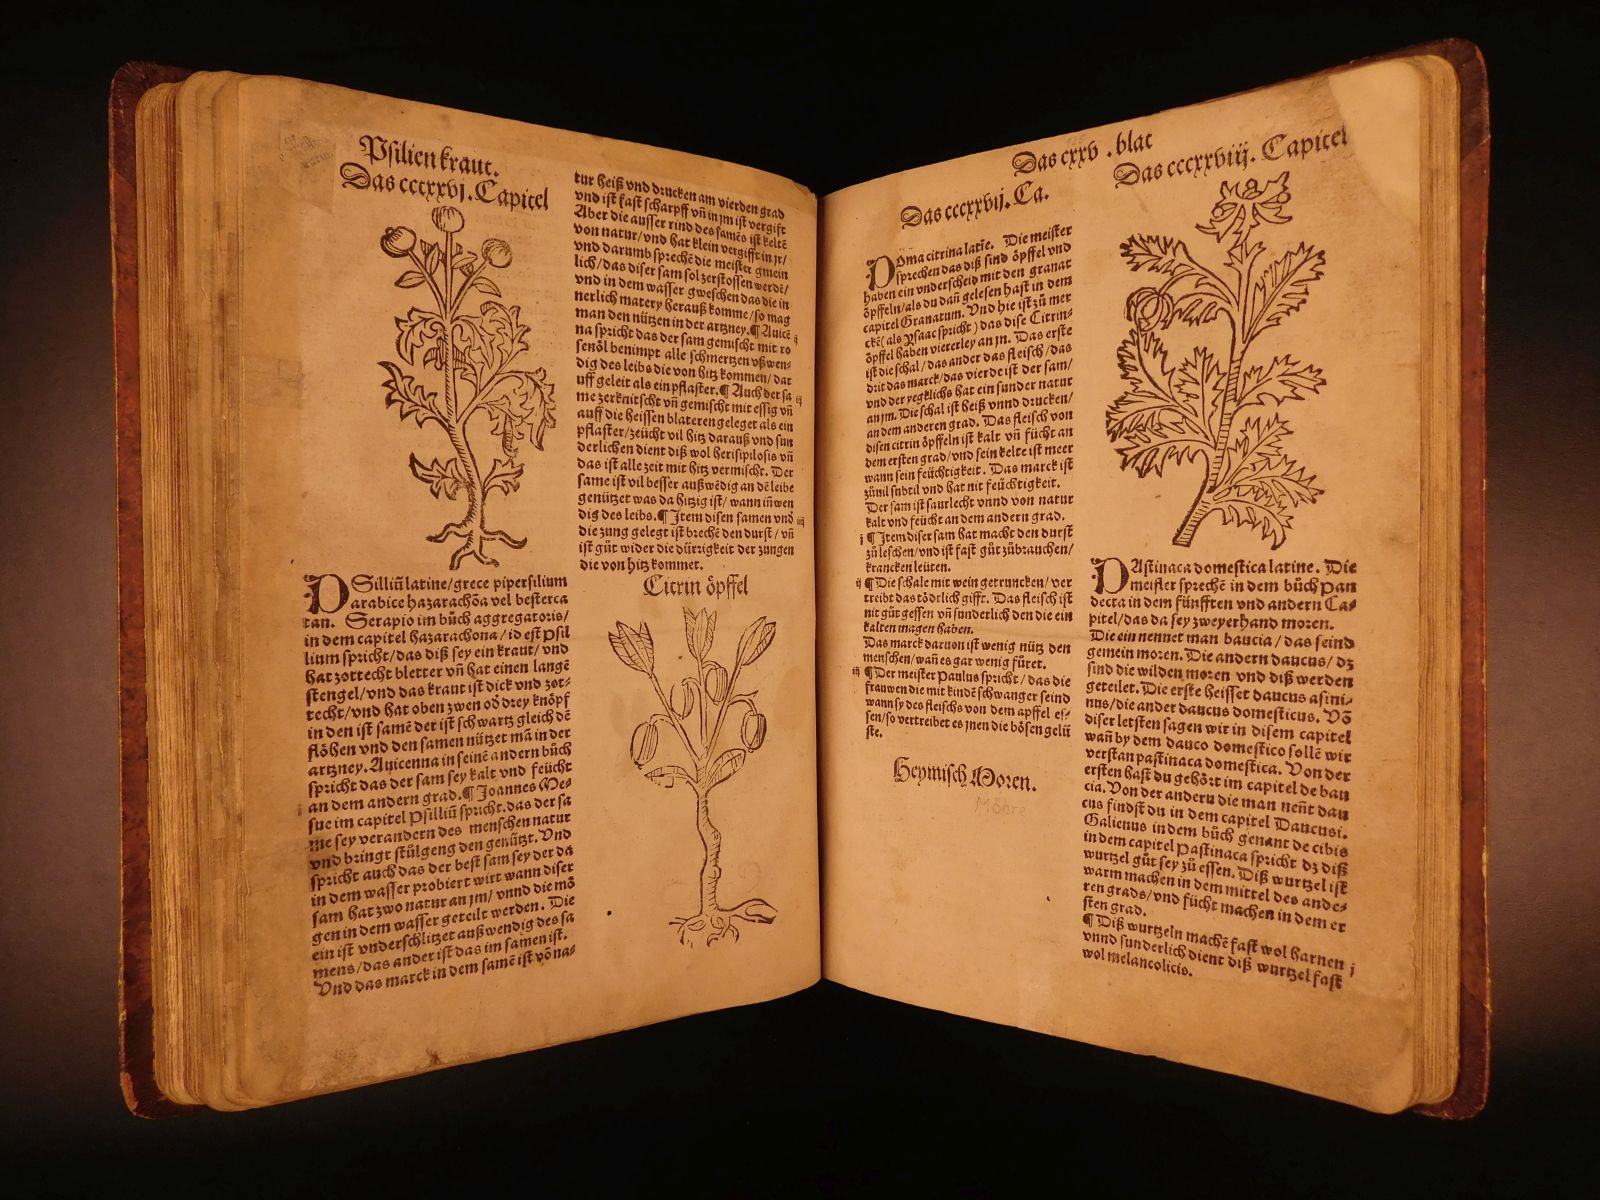 Psilien kraut.
Das cccxxvj. Capitel
PSilliū latine/grece pipersilium
arabice hazarachōa vel besterca
tan. Serapio im bůch aggregatoris/
in dem capitel hazarachona/id est Psil
lium spricht/das diß sey ein kraut/vnd
hat zottecht bletter vñ hat einen langē
stengel/vnd das kraut ist dick vnd zot-
techt/vnd hat oben zwen od̄ drey knöpf
in den ist samē der ist schwartz gleich dē
flöhen vnd den samen nützet mā in der
artzney. Auicenna in seinē andern bůch
spricht das der sam sey kalt vnd feücht
an dem andern grad.¶ Joannes Me-
sue im capitel Psilliū spricht.das der sa
me sey verandern des menschen natur
vnd bringt stůlgeng den genützt. Vnd
spricht auch das der best sam sey der da
in dem wasser probiert wirt wann diser
sam hat zwo natur an jm/ vnnd die mō
gen in dem wasser geteilt werden. Die
ein ist vnderschlitzet außwendig des sa
mens/das ander ist das im samen ist.
Vnd das marck in dem samē ist vō na-
tur heiß vnd drucken am vierden grad
vnd ist fast scharpff vñ in jm ist vergift
Aber die ausser rind des samēs ist keltē
von natur/vnd hat klein vergifft in jr/
vnd darumb sprechē die meister gmein
lich/das diser sam sol zerstossen werdē/
vnd in dem wasser gweschen das die in
nerlich matery herauß komme/so mag
man den nützen in der artzney.¶ Auicē
na spricht das der sam gemischt mit ro
senöl benimpt alle schmertzen vßwen-
dig des leibs die von hitz kommen/dar
uff geleit als ein pflaster.¶ Auch der sa
me zerknitscht vñ gemischt mit essig vñ
auff die heissen blateren geleget als ein
pflaster/zeücht vil hitz darauß vnd sun
derlichen dient diß wol herisipilosis vñ
das ist alle zeit mit hitz vermischt. Der
same ist vil besser außwēdig an dē leibe
genützet was da hitzig ist/ wann iñwen
dig des leibs.¶ Jtem disen samen vnd̄
die zung gelegt ist brechē den durst/ vñ
ist gůt wider die dürzigkeit der zungen
die von hitz kommet.
Citrin öpffel
Das cxxv .blat
Das cccxxvij. Ca.
POma citrina latīe. Die meister
sprechen das diß sind öpffel vnd
haben ein vnderscheid mit den granat
öpffeln/als du dañ gelesen hast in dem
capitel Granatum. Vnd hie ist zů mer
ckē( als Ysaac spricht) das dise Citrin-
öpffel haben viererley an jn. Das erste
ist die schal/das ander das fleisch/das
drit das marck/das vierde ist der sam/
vnd der yegklichs hat ein sunder natur
an jm. Die schal ist heiß vnnd drucken/
an dem anderen grad. Das fleisch von
disen citrin öpffeln ist kalt vñ fücht an
dem ersten grad/vnd sein kelte ist meer
wann sein feüchtigkeit. Das marck ist
zůuil subtil vnd hat nit feüchtigkeit.
Der sam ist saurlecht vnnd von natur
kalt vnd feücht an dem andern grad.
j ¶ Jtem diser sam hat macht den durst
zů leschen/vnd ist fast gůt zůbrauchen/
krancken leüten.
ij ¶ Die schale mit wein getruncken/ ver
treibt das tödtlich gifft. Das fleisch ist
nit gůt gessen vñ sunderlich den die ein
kalten magen haben.
Das marck daruon ist wenig nütz den
menschen/wañ es gar wenig fůret.
iij ¶ Der meister Paulus spricht/ das die
frauwen die mit kindē schwanger seind
wann sy des fleischs von dem apffel es-
sen/so vertreibet es jnen die bösen gelü
ste.
Heymisch Moren.
Möhre
Das cccxxviij. Capitel
PAstinaca domestica latine. Die
meister sprechē in dem bůch Pan
decta in dem fünfften vnd andern Ca-
pitel/das da sey zweyerhand moren.
Die ein nennet man baucia/das seind
gemein moren. Die andern daucus/ dz
sind die wilden moren vnd diß werden
geteilet. Die erste heisset daucus asini-
nus/die ander daucus domesticus. Vō
diser letsten sagen wir in disem capitel
wañ by dem dauco domestico sollē wir
verstan pastinaca domestica. Von der
ersten hast du gehört im capitel de bau
cia. Von der andern die man neñt dau
cus findst du in dem capitel Daucusi.
Galienus in dem bůch genant de cibis
in dem capitel Pastinaca spricht dz diß
wurtzel gůt sey zů essen. Diß wurtzel ist
warm machen in dem mittel des ande-
ren grads/vnd fücht machen in dem er
sten grad.
¶ Diß wurtzeln machē fast wol harnen j
vnnd sunderlich dient diß wurtzel fast
wol melancolicis.